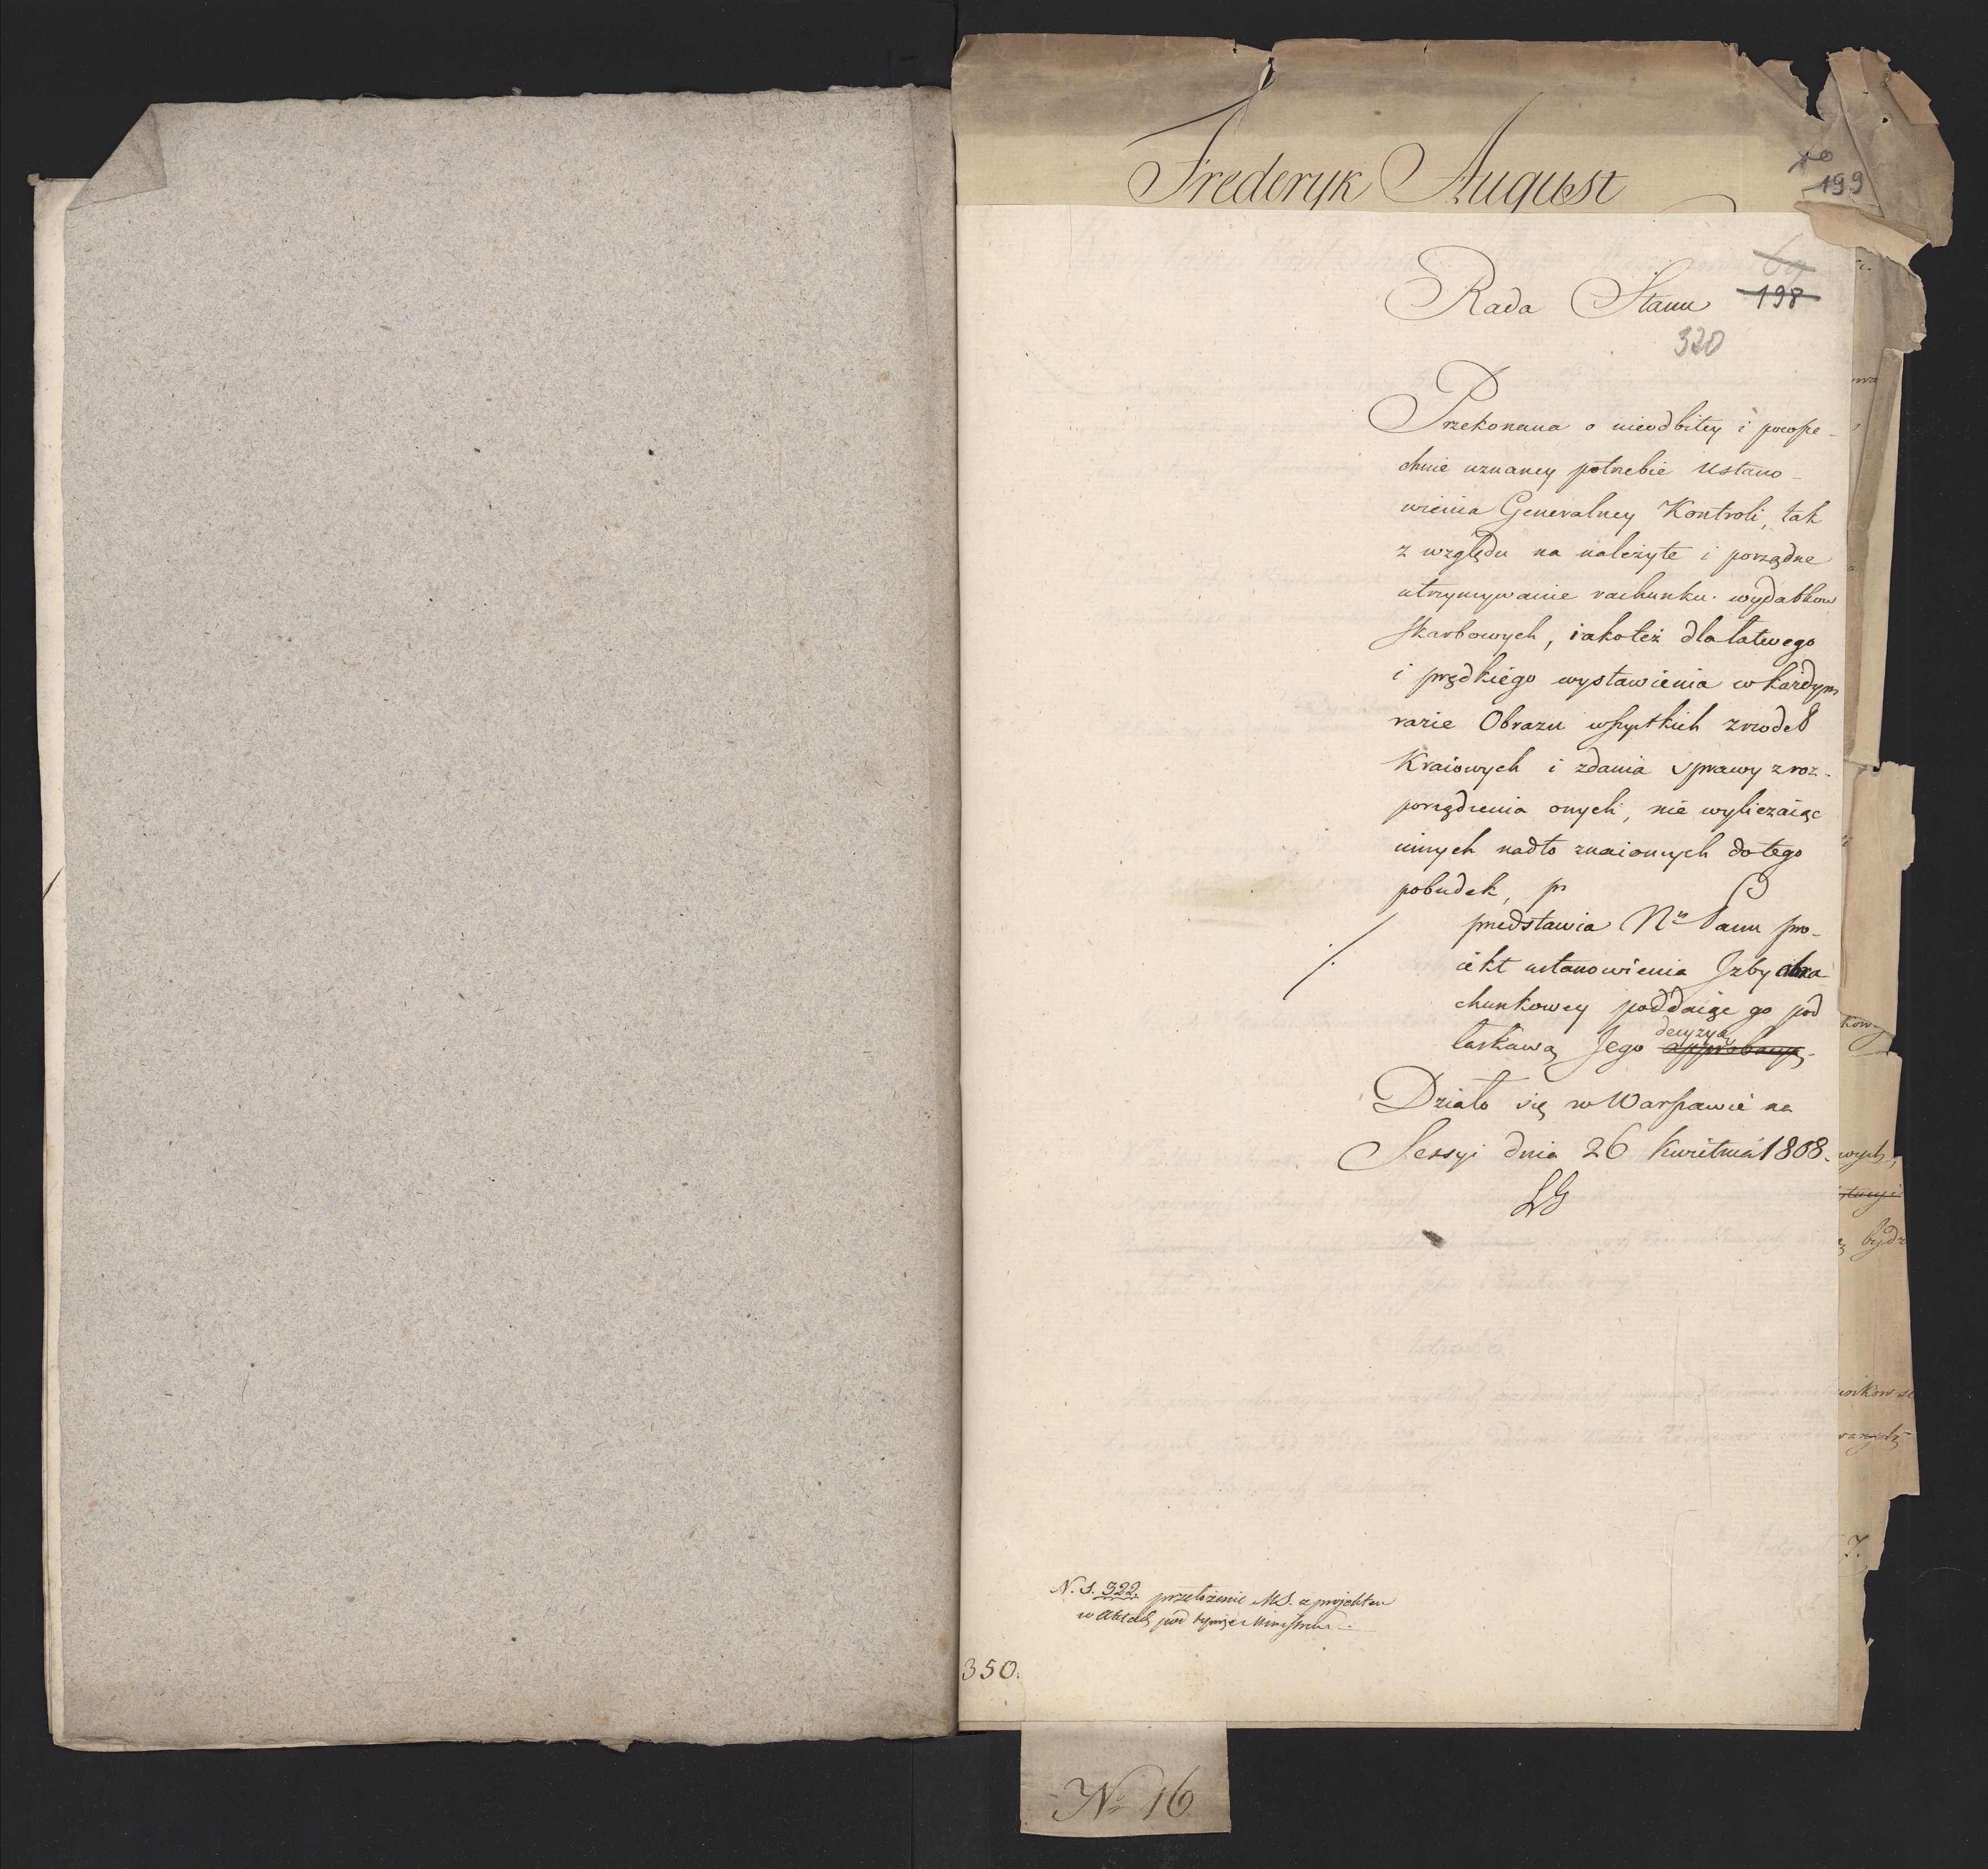 Frederyk August
199
Rada Stanu
198
320
Przekonana o nieodbitey i powsze-
chnie uznaney potrzebie Ustano-
wienia Generalney Kontroli, tak
z względu na należyte i porządne
utrzymywanie rachunku wydatkow
skarbowych, iakoteż dla łatwego
i prędkiego wystawienia w każdym
razie Obrazu wszystkich zrodeł
Kraiowych i zdania sprawy z roz-
porządzenia onych, nie wyliczaiąc
innych nadto znaiomych do tego
pobudek, pr
przedstawia Nu Panu pro-
iekt ustanowienia Izby obra
chunkowey poddaiąc go pod
decyzyą
łaskawą Jego approbacyą.
Działo się w Warszawie na
Sessyi dnia 26 Kwietnia 1808.
N. S. 322. przełożenie MS. z projektem
w Aktach pod
350.
No 16